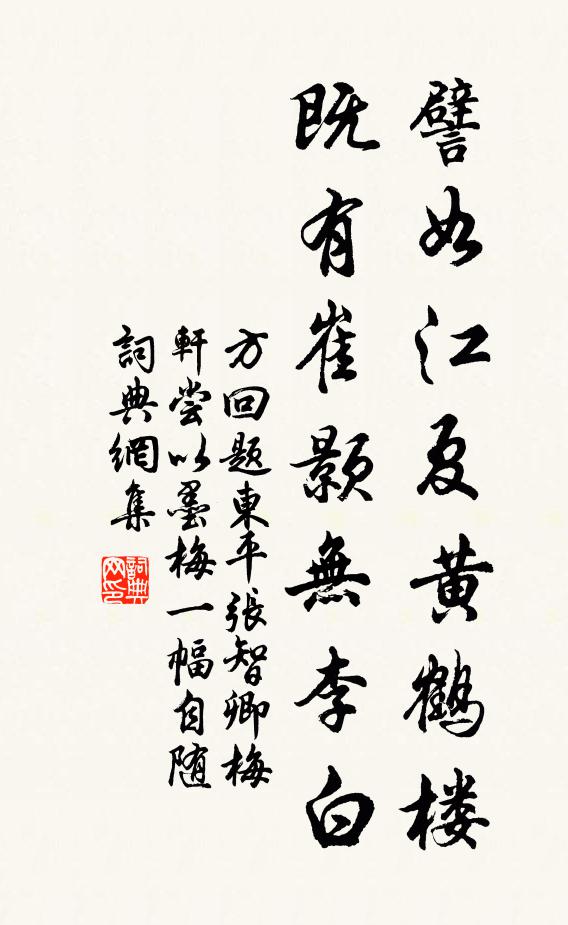 譬如江夏黄鶴楼
既有崔顥無李白
方回题東平張智卿梅
軒嘗以墨梅一幅自随
詞典網集
詞典網印